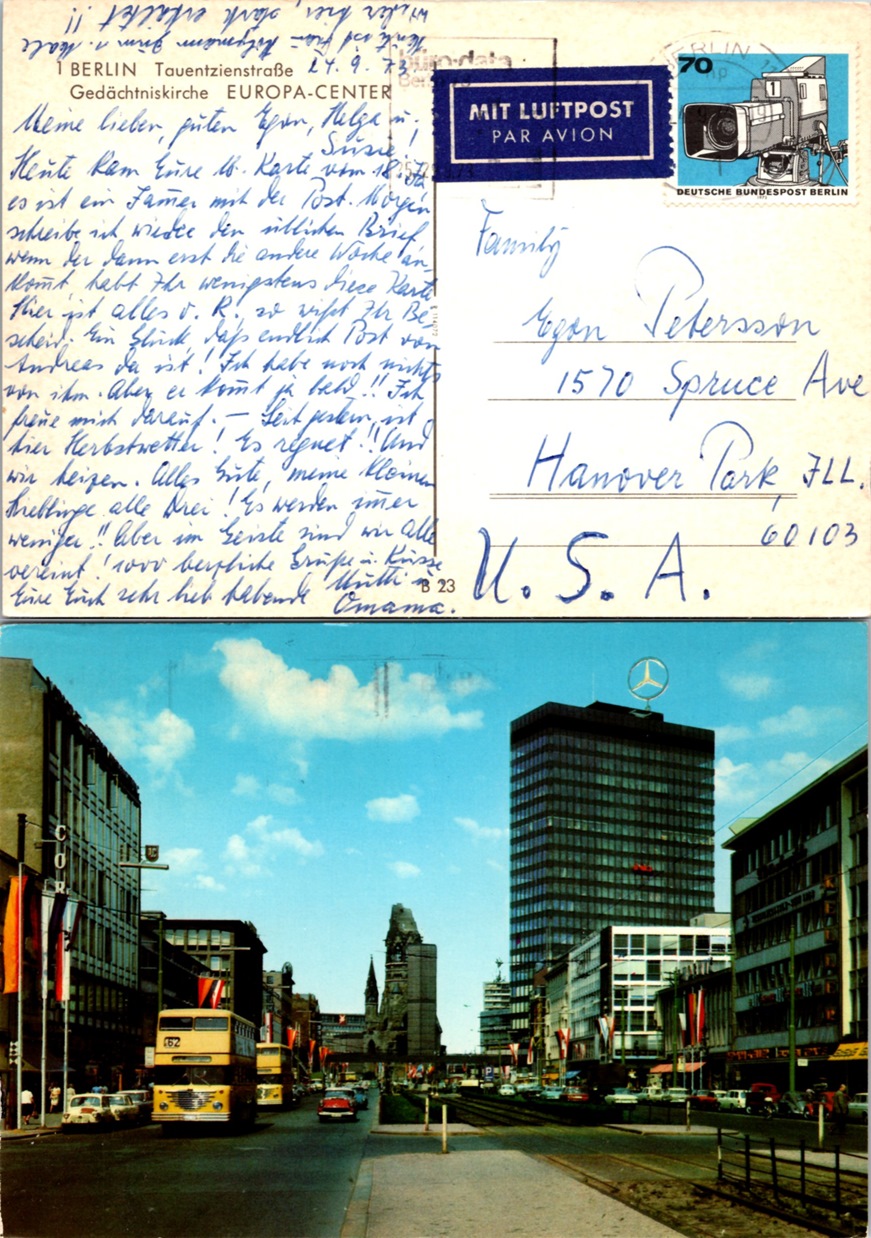 wieder hier, stark erkältet !!
Heute ist Frau
1 BERLIN Tauentzienstraße 24. 9. 73
Gedächtniskirche EUROPA-CENTER
Meine lieben, guten Egon, Helga u.
Susie!
Heute kam Eure lb. Karte vom 18. Ja
es ist ein Jammer mit der Post. Morgen
schreibe ich wieder den üblichen Brief,
wenn der dann erst die andere Woche an-
kommt, habt Ihr wenigstens diese Karte
Hier ist alles o. K., so wißt Ihr Be-
scheid. Ein Glück, daß endlich Post von
Andreas da ist! Ich habe noch nichts
von ihm. Aber er kommt ja bald!! Ich
freue mich darauf. — Seit gestern ist
hier Herbstwetter! Es regnet!! Und
wir heizen. Alles Gute, meine kleinen
Lieblinge alle Drei! Es werden immer
weniger!! Aber im Geiste sind wir alle
vereint! 1000 herzliche Grüße u. Küsse
Eure Euch sehr lieb habende Mutti u.
Omama.
büro-data
Berlin
MIT LUFTPOST
PAR AVION
BERLIN
70
1
DEUTSCHE BUNDESPOST BERLIN
1973
Family
Egon Petersson
1570 Spruce Ave
Hanover Park, ILL.
60103
U. S. A.
B 23
COR
62